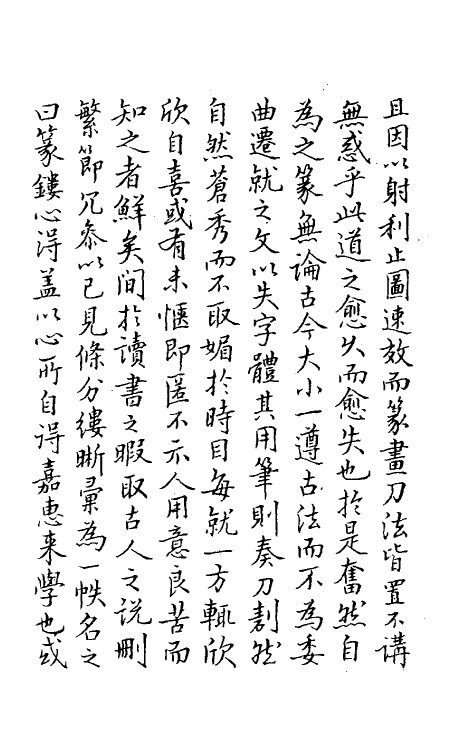 且因以射利止圖速效而篆畫刀法皆置不講
無惑乎此道之愈久而愈失也於是奮然自
為之篆無論古今大小一遵古法而不為委
曲遷就之文以失字體其用筆則奏刀劃然
自然蒼秀而不取媚於時目每就一方輒欣
欣自喜或有未愜即匿不示人用意良苦而
知之者鮮矣間於讀書之暇取古人之說刪
繁節冗叅以己見條分縷晰彙為一帙名之
曰篆鏤心得盖以心所自得嘉惠来學也或